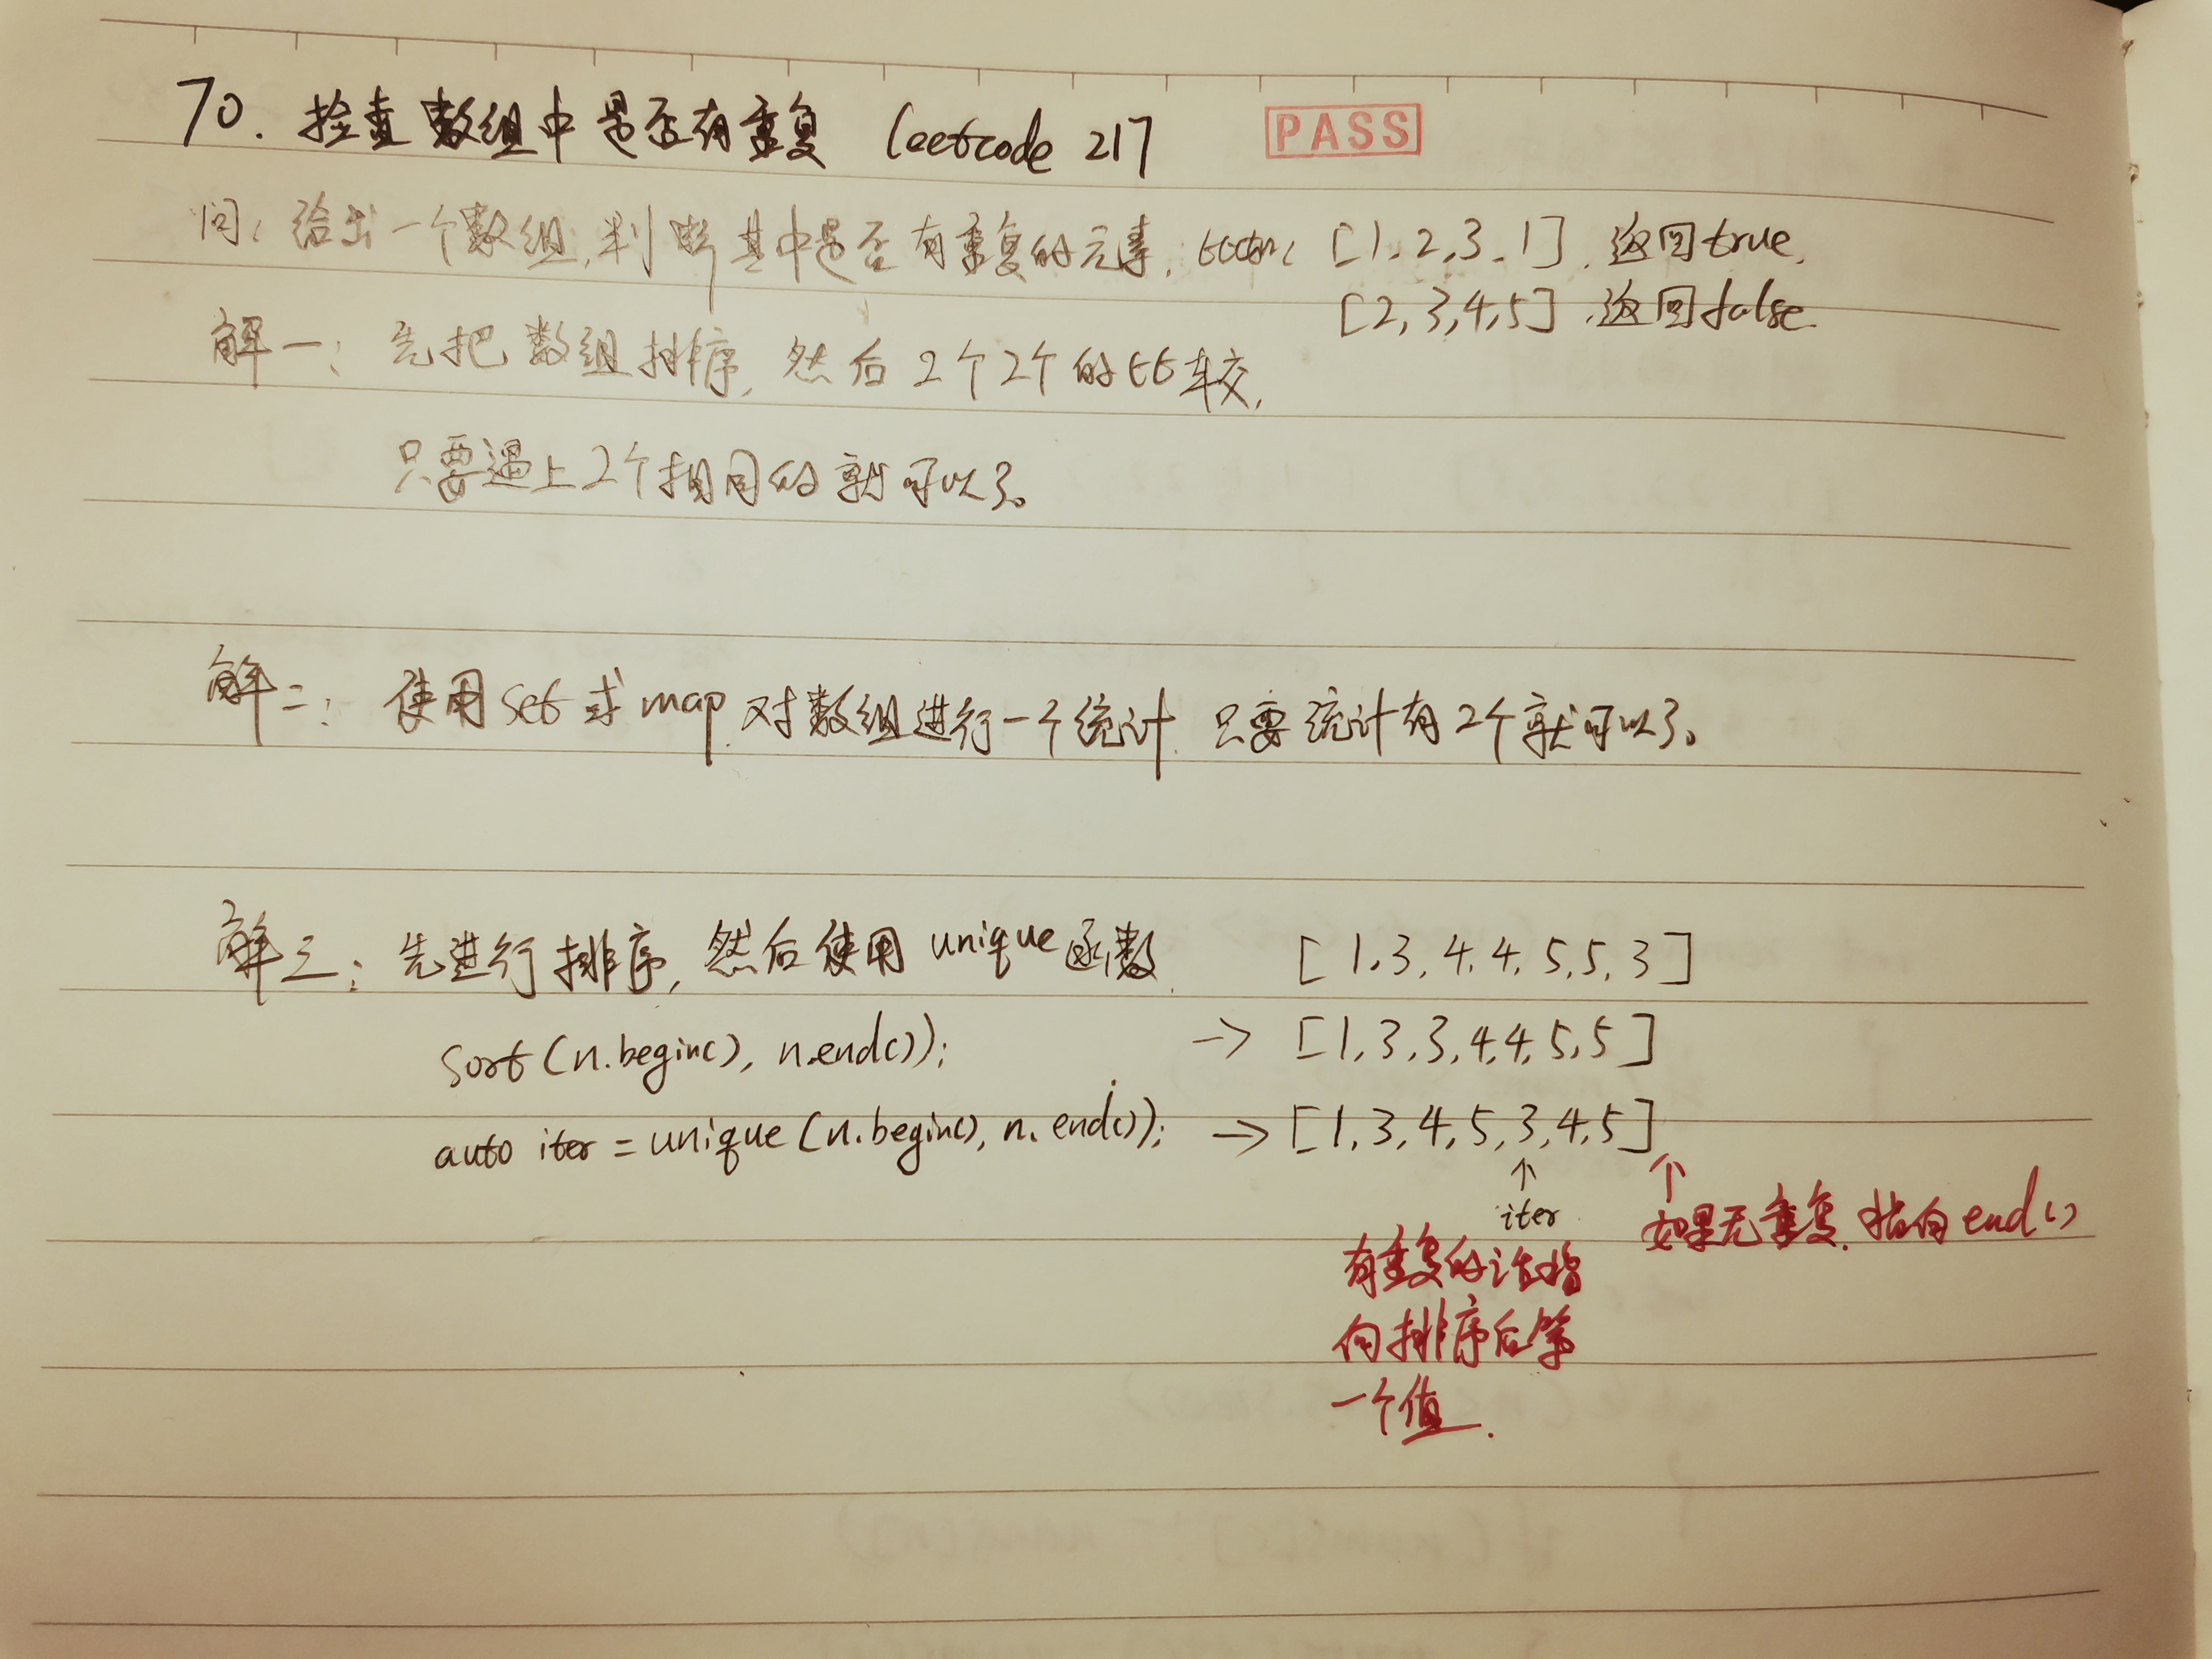 70. 检查数组中是否有重复 leetcode 217 PASS
问: 给出一个数组,判断其中是否有重复的元素. 比如: [1,2,3,1], 返回true,
[2,3,4,5], 返回false.
解一: 先把数组排序, 然后2个2个的比较,
只要遇上2个相同的就可以了。
解二: 使用set或map, 对数组进行一个统计, 只要统计有2个就可以了。
解三: 先进行排序, 然后使用unique函数. [1,3,4,4,5,5,3]
sort(n.begin(), n.end()); → [1,3,3,4,4,5,5]
auto iter = unique(n.begin(), n.end()); → [1,3,4,5,3,4,5]
↑ ↑
iter 如果无重复, 指向end()
有重复的话指
向排序后第
一个值.